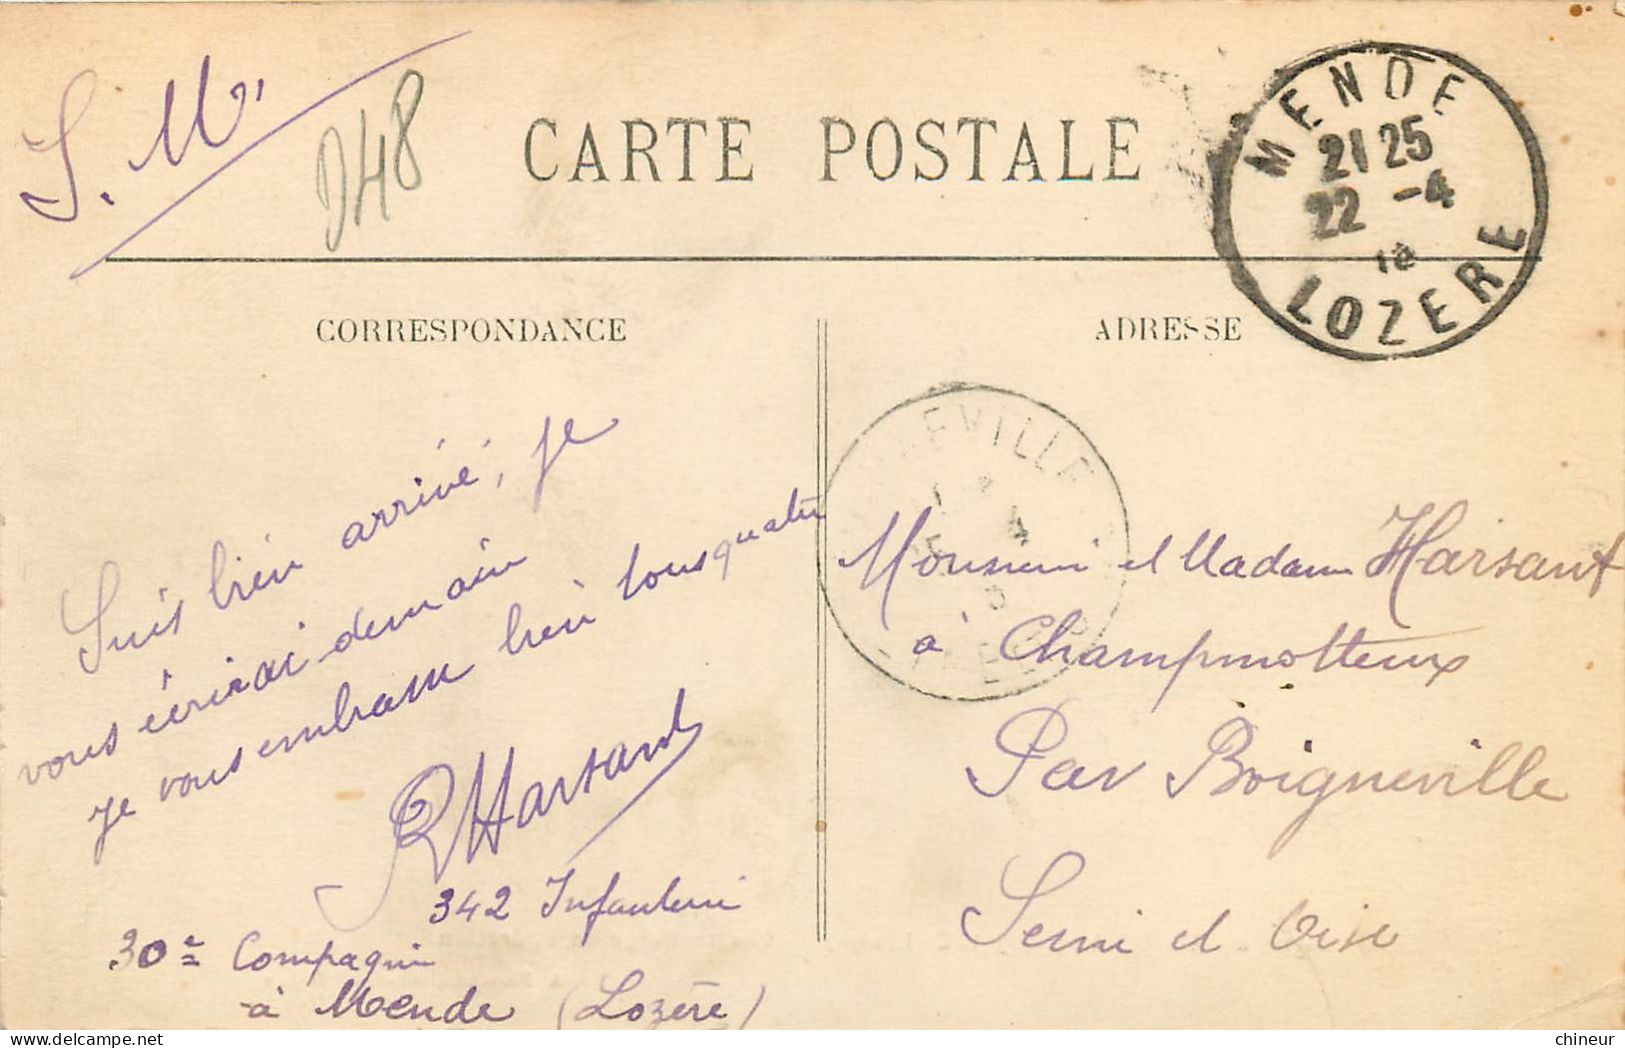 S. M.
D48
CARTE POSTALE
MENDE
21 25
22 -4
LOZERE
CORRESPONDANCE
ADRESSE
Suis bien arrivé, je
vous écrirai demain
je vous embrasse bien tous quatre
R Harsant
342 Infanterie
30e Compagnie
à Mende (Lozère)
Monsieur et Madame Harsant
à Champmotteux
Par Boigneville
Seine et Oise
chineur